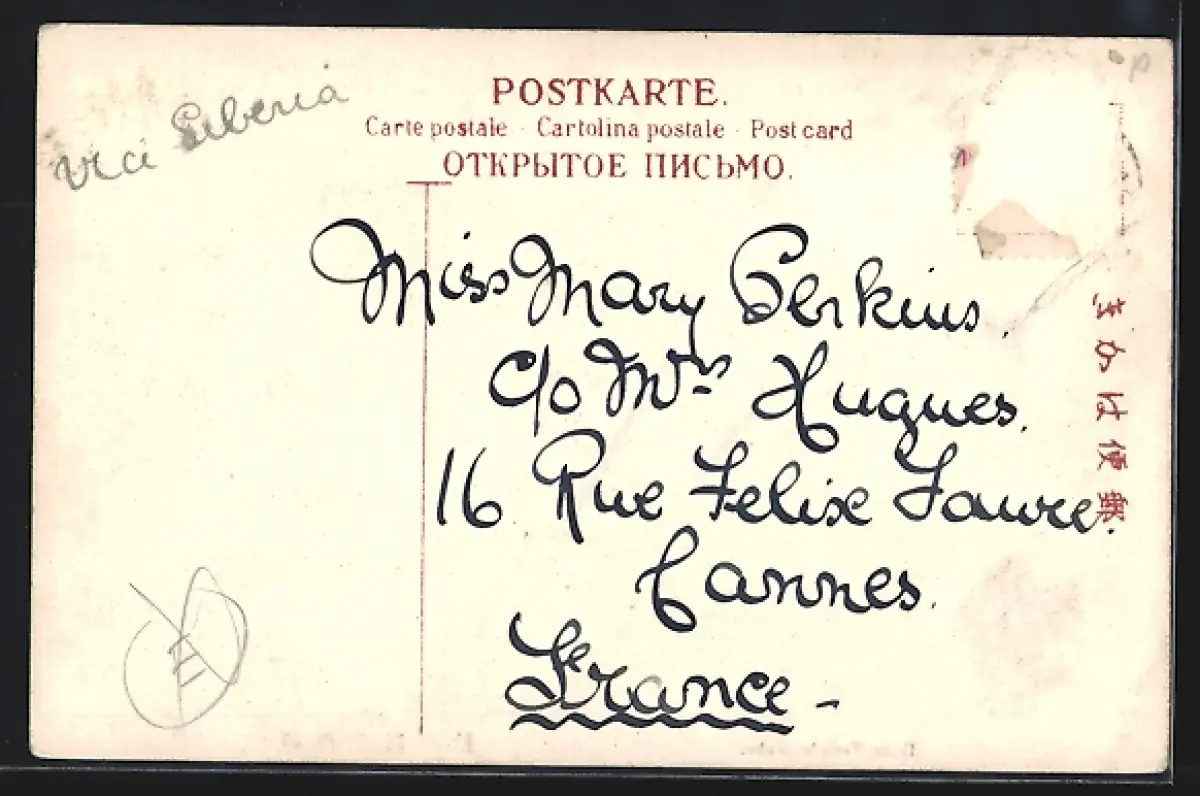 via Siberia
POSTKARTE.
Carte postale · Cartolina postale · Post card
ОТКРЫТОЕ ПИСЬМО.
Miss Mary Perkins.
c/o Mrs Hugues.
16 Rue Felix Faure.
Cannes.
France -
きかは便郵